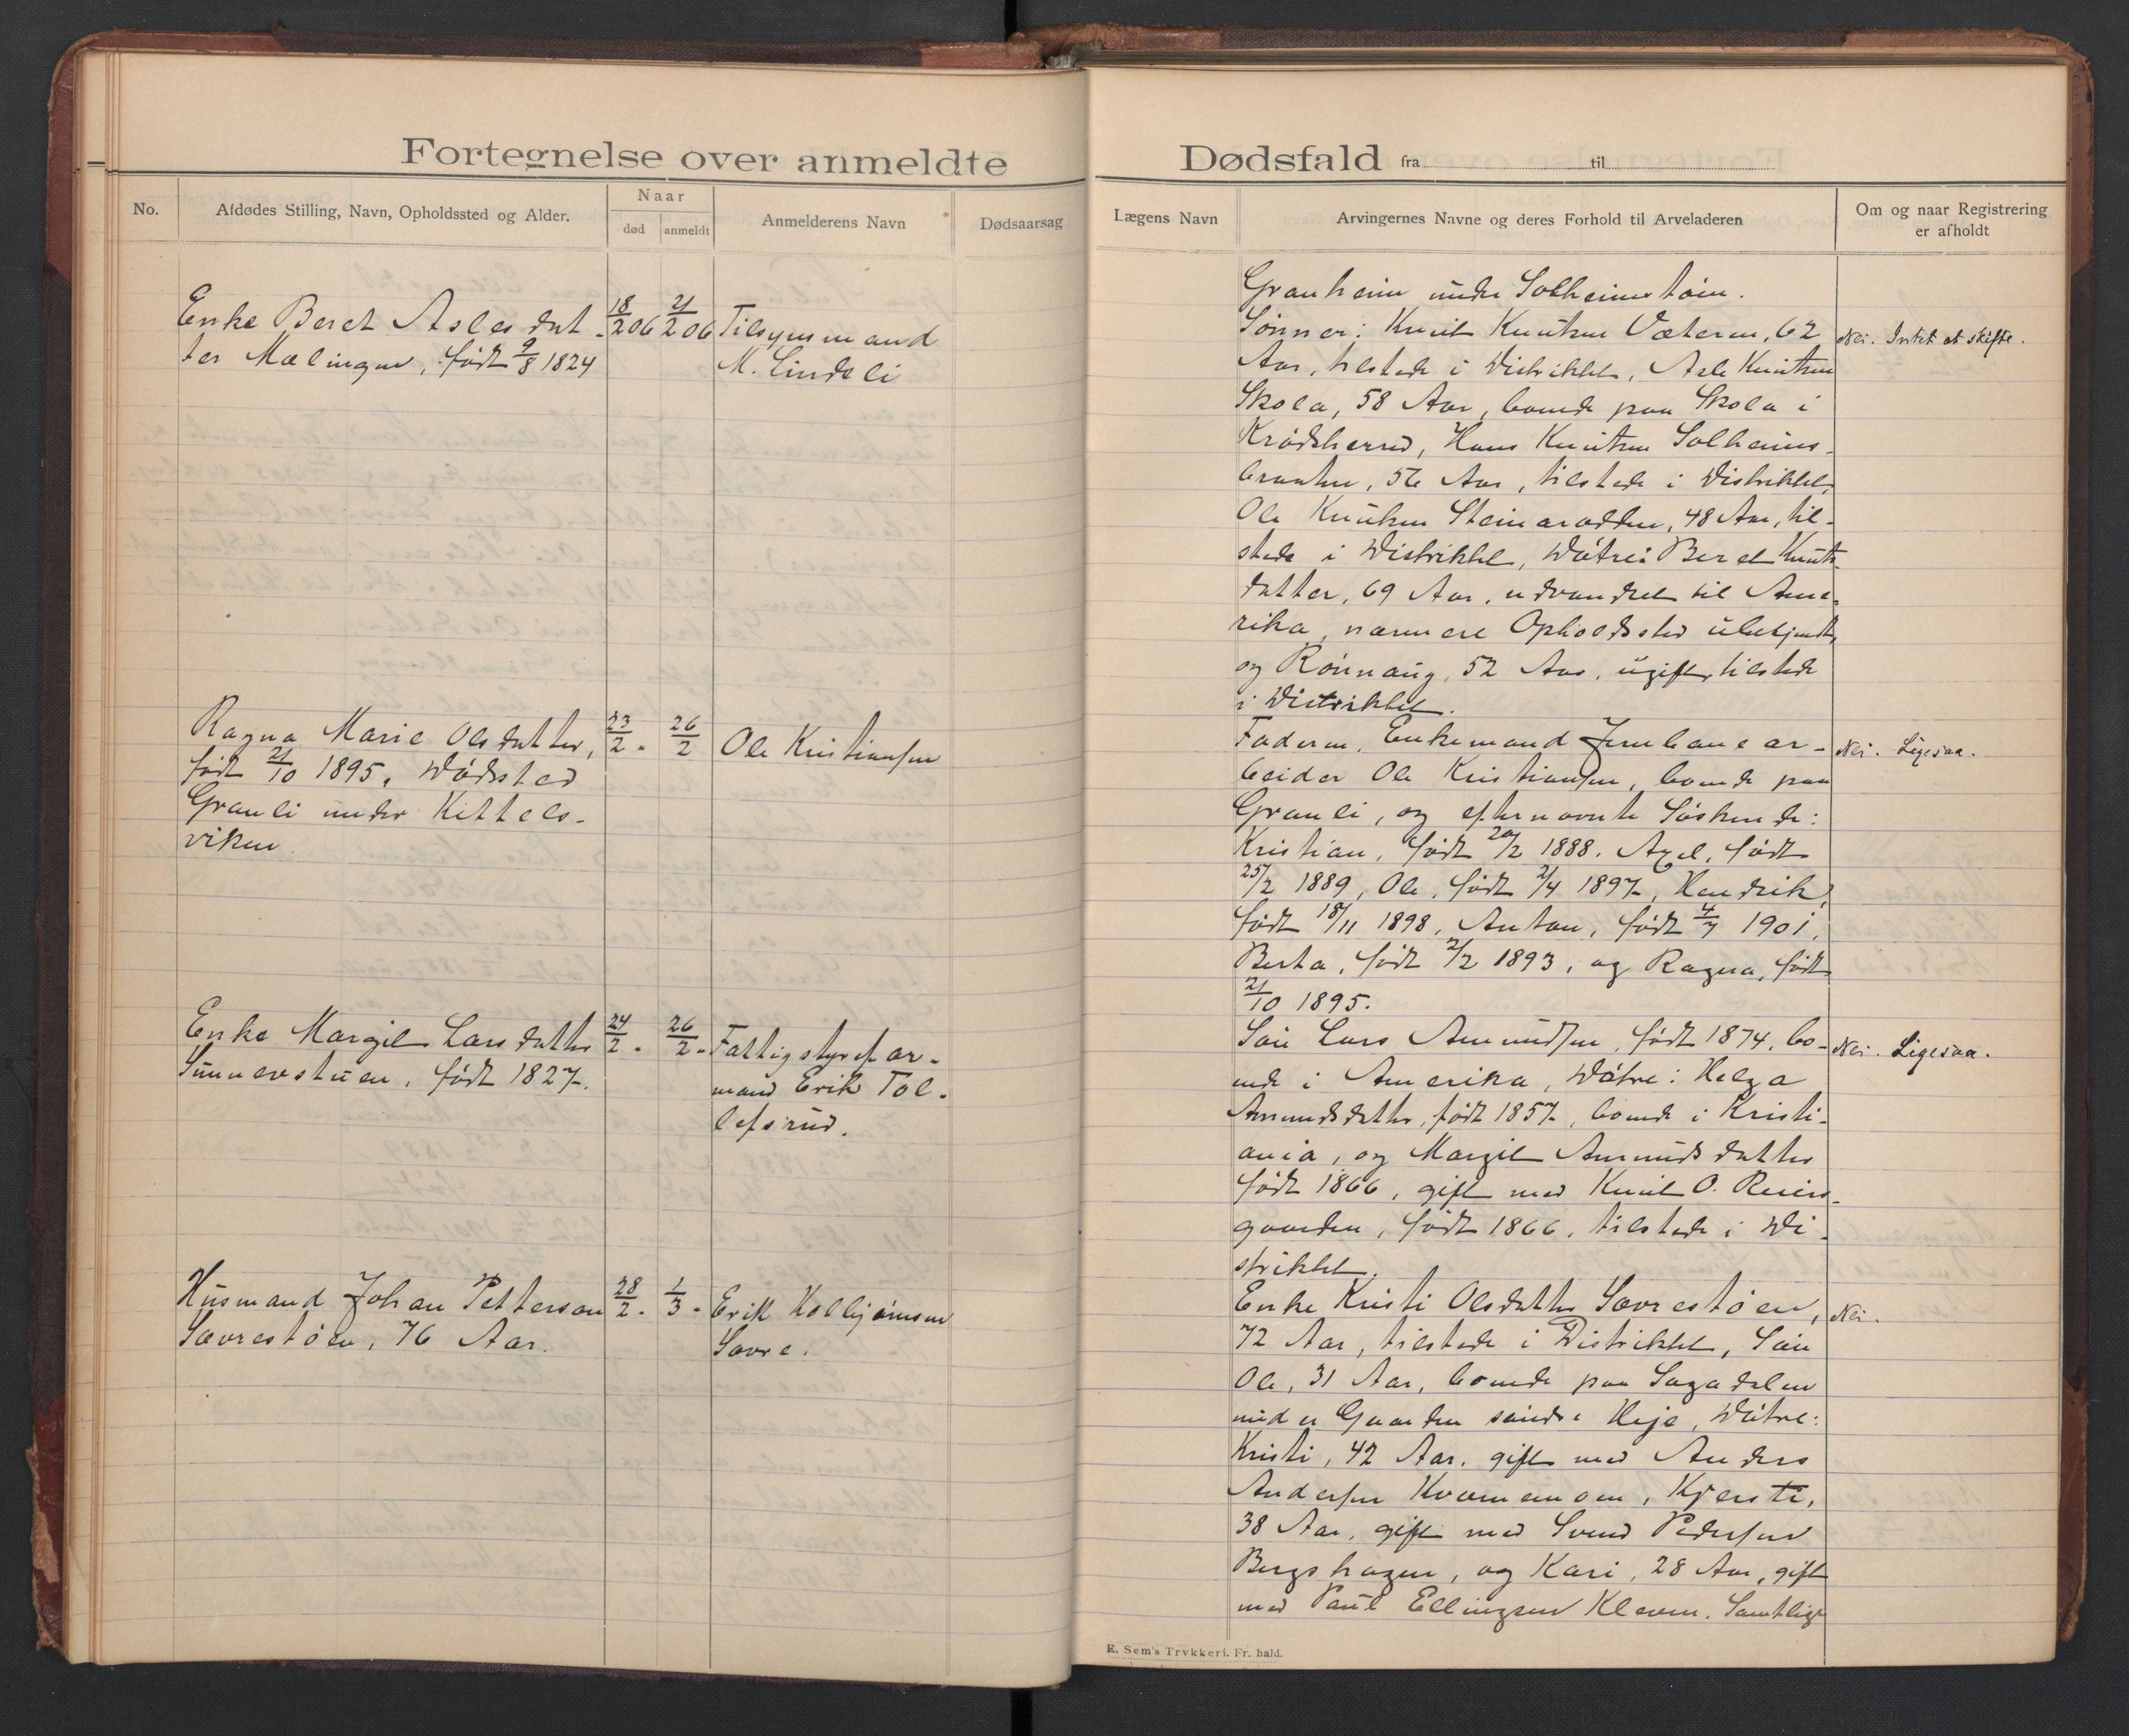 Fortegnelse over anmeldte
Dødsfald fra til
No.
Afdødes Stilling, Navn, Opholdssted og Alder.
Naar
død
anmeldt
Anmelderens Navn
Dødsaarsag
Lægens Navn
Arvingernes Navne og deres Forhold til Arveladeren
Om og naar Registrering
er afholdt
Enke Beret Aslesdat-
ter Mælingen, født 9/8 1824
18/2 06
21/2 06
Tilsynsmand
M. Lindeli
Granheim under Solheimstøin.
Sønner: Knut Knutsen Væteren, 62
Aar, tilstede i Distriktet, Asle Knutsen
Skola, 58 Aar, boende paa Skola i
Krødsherred, Hans Knutsen Solheims-
braaten, 56 Aar, tilstede i Distriktet,
Ole Knutsen Steinarodden, 48 Aar, til-
stede i Distriktet, Døtre: Beret Knuts-
datter, 69 Aar, udvandret til Ame-
rika, nærmere Opholdssted ubekjendt,
og Rönnaug, 52 Aar, ugift, tilstede
i Distriktet.
Nei. Intet at skifte.
Ragna Marie Olsdatter,
født 21/10 1895. Dødssted
Granli under Kittels-
viken.
23/2 -
26/2
Ole Kristiansen
Faderen, Enkemand Jernbanear-
beider Ole Kristiansen, boende paa
Granli, og efternævnte Søskende:
Kristian, født 20/2 1888. Axel, født
25/2 1889, Ole, født 21/4 1897, Hendrik,
født 18/11 1898, Anton, født 4/7 1901,
Berta, født 2/2 1893, og Ragna, født
21/10 1895.
Nei. Ligesaa.
Enke Margit Larsdatter
Sunnerstuen, født 1827.
24/2 -
26/2 -
Fattigstyrefor-
mand Erik Tol-
lefsrud.
Søn Lars Amundsen, født 1874, bo-
ende i Amerika, Døtre: Helga
Amundsdatter, født 1857, boende i Kristi-
ania, og Margit Amundsdatter
født 1866, gift med Knut O. Reiers-
gaarden, født 1866, tilstede i Di-
striktet.
Nei. Ligesaa.
Husmand Johan Petterson
Sævrestøen, 76 Aar.
28/2 -
1/3 -
Erik Kolbjørnsen
Sævre.
Enke Kristi Olsdatter Sævrestøen,
72 Aar, tilstede i Distriktet, Søn
Ole, 31 Aar, boende paa Sagadalen
under Gaarden søndre Heje, Døtre:
Kristi, 42 Aar, gift med Anders
Andersen Kværnemoen, Kjersti,
38 Aar, gift med Svend Pedersen
Bergshagen, og Kari, 28 Aar, gift
med Paul Ellingsen Kleven. Samtlige
Nei.
E. Sem's Trykkeri, Fr. hald.